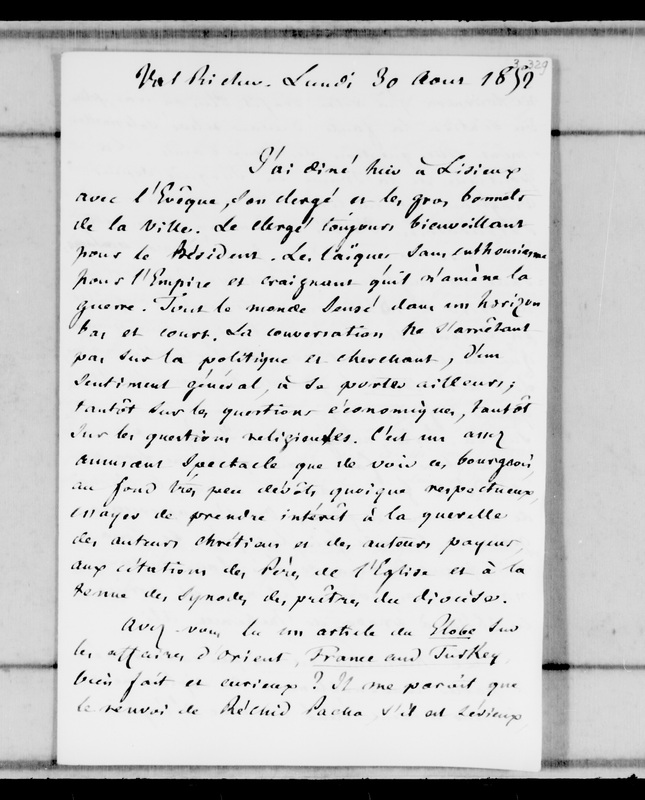 3.329
Val Richer. Lundi 30 Aout 1852
J'ai diné hier à Lisieux
avec l'Evêque, son clergé et les gros bonnets
de la ville. Le clergé toujours bienveillant
pour le Président. Les laïques sans enthousiasme
pour l'Empire et craignant qu'il n'amène la
guerre. Tout le monde sensé dans un horizon
bas et court. La conversation ne s'arrêtant
pas sur la politique et cherchant, d'un
sentiment général, à se porter ailleurs;
tantôt sur les questions économiques, tantôt
sur les questions religieuses. C'est un assez
amusant spectacle que de voir ces bourgeois,
au fond très peu dévôts quoique respectueux,
essayer de prendre intérêt à la querelle
des auteurs chrétiens et des auteurs payens,
aux citations des Pères de l'Eglise et à la
tenue des Synodes des prêtres du diocèse.
Avez-vous lu un article du Globe sur
les affaires d'Orient, France and Turkey,
bien fait et curieux? Il me paroit que
le renvoi de Réchid Pacha, s'il est sérieux,